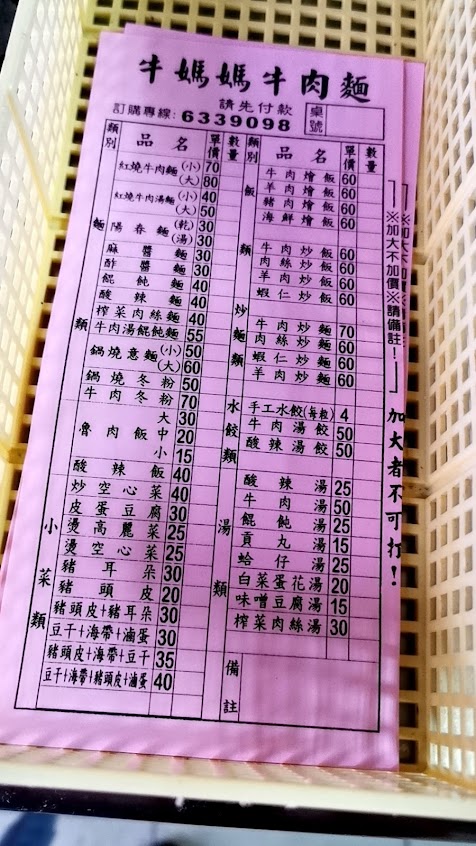 牛媽媽牛肉麵
請先付款
訂購專線: 6339098
桌號
類別 品名 單價 數量
麵類
紅燒牛肉麵 (小) 70
(大) 80
紅燒牛肉湯麵 (小) 40
(大) 50
陽春麵 (乾) 30
(湯) 30
麻醬麵 30
酢醬麵 30
餛飩麵 40
酸辣麵 40
榨菜肉絲麵 40
牛肉湯餛飩麵 55
鍋燒意麵 (小) 50
(大) 60
鍋燒冬粉 50
牛肉冬粉 70
魯肉飯 大 30
中 20
小 15
酸辣飯 40
小菜類
炒空心菜 40
皮蛋豆腐 30
燙高麗菜 25
燙空心菜 25
豬耳朵 30
豬頭皮 20
豬頭皮+豬耳朵 30
豆干+海帶+滷蛋 30
豬頭皮+海帶+豆干 35
豆干+海帶+豬頭皮+滷蛋 40
類別 品名 單價 數量
飯類
牛肉燴飯 60
羊肉燴飯 60
豬肉燴飯 60
海鮮燴飯 60
牛肉炒飯 60
肉絲炒飯 60
羊肉炒飯 60
蝦仁炒飯 60
炒麵類
牛肉炒麵 70
肉絲炒麵 60
蝦仁炒麵 60
羊肉炒麵 60
水餃類
手工水餃(每粒) 4
牛肉湯餃 50
酸辣湯餃 50
湯類
酸辣湯 25
牛肉湯 50
餛飩湯 25
貢丸湯 15
蛤仔湯 25
白菜蛋花湯 20
味噌豆腐湯 15
榨菜肉絲湯 30
備註
※加大不加價※請備註!
加大者不可打!